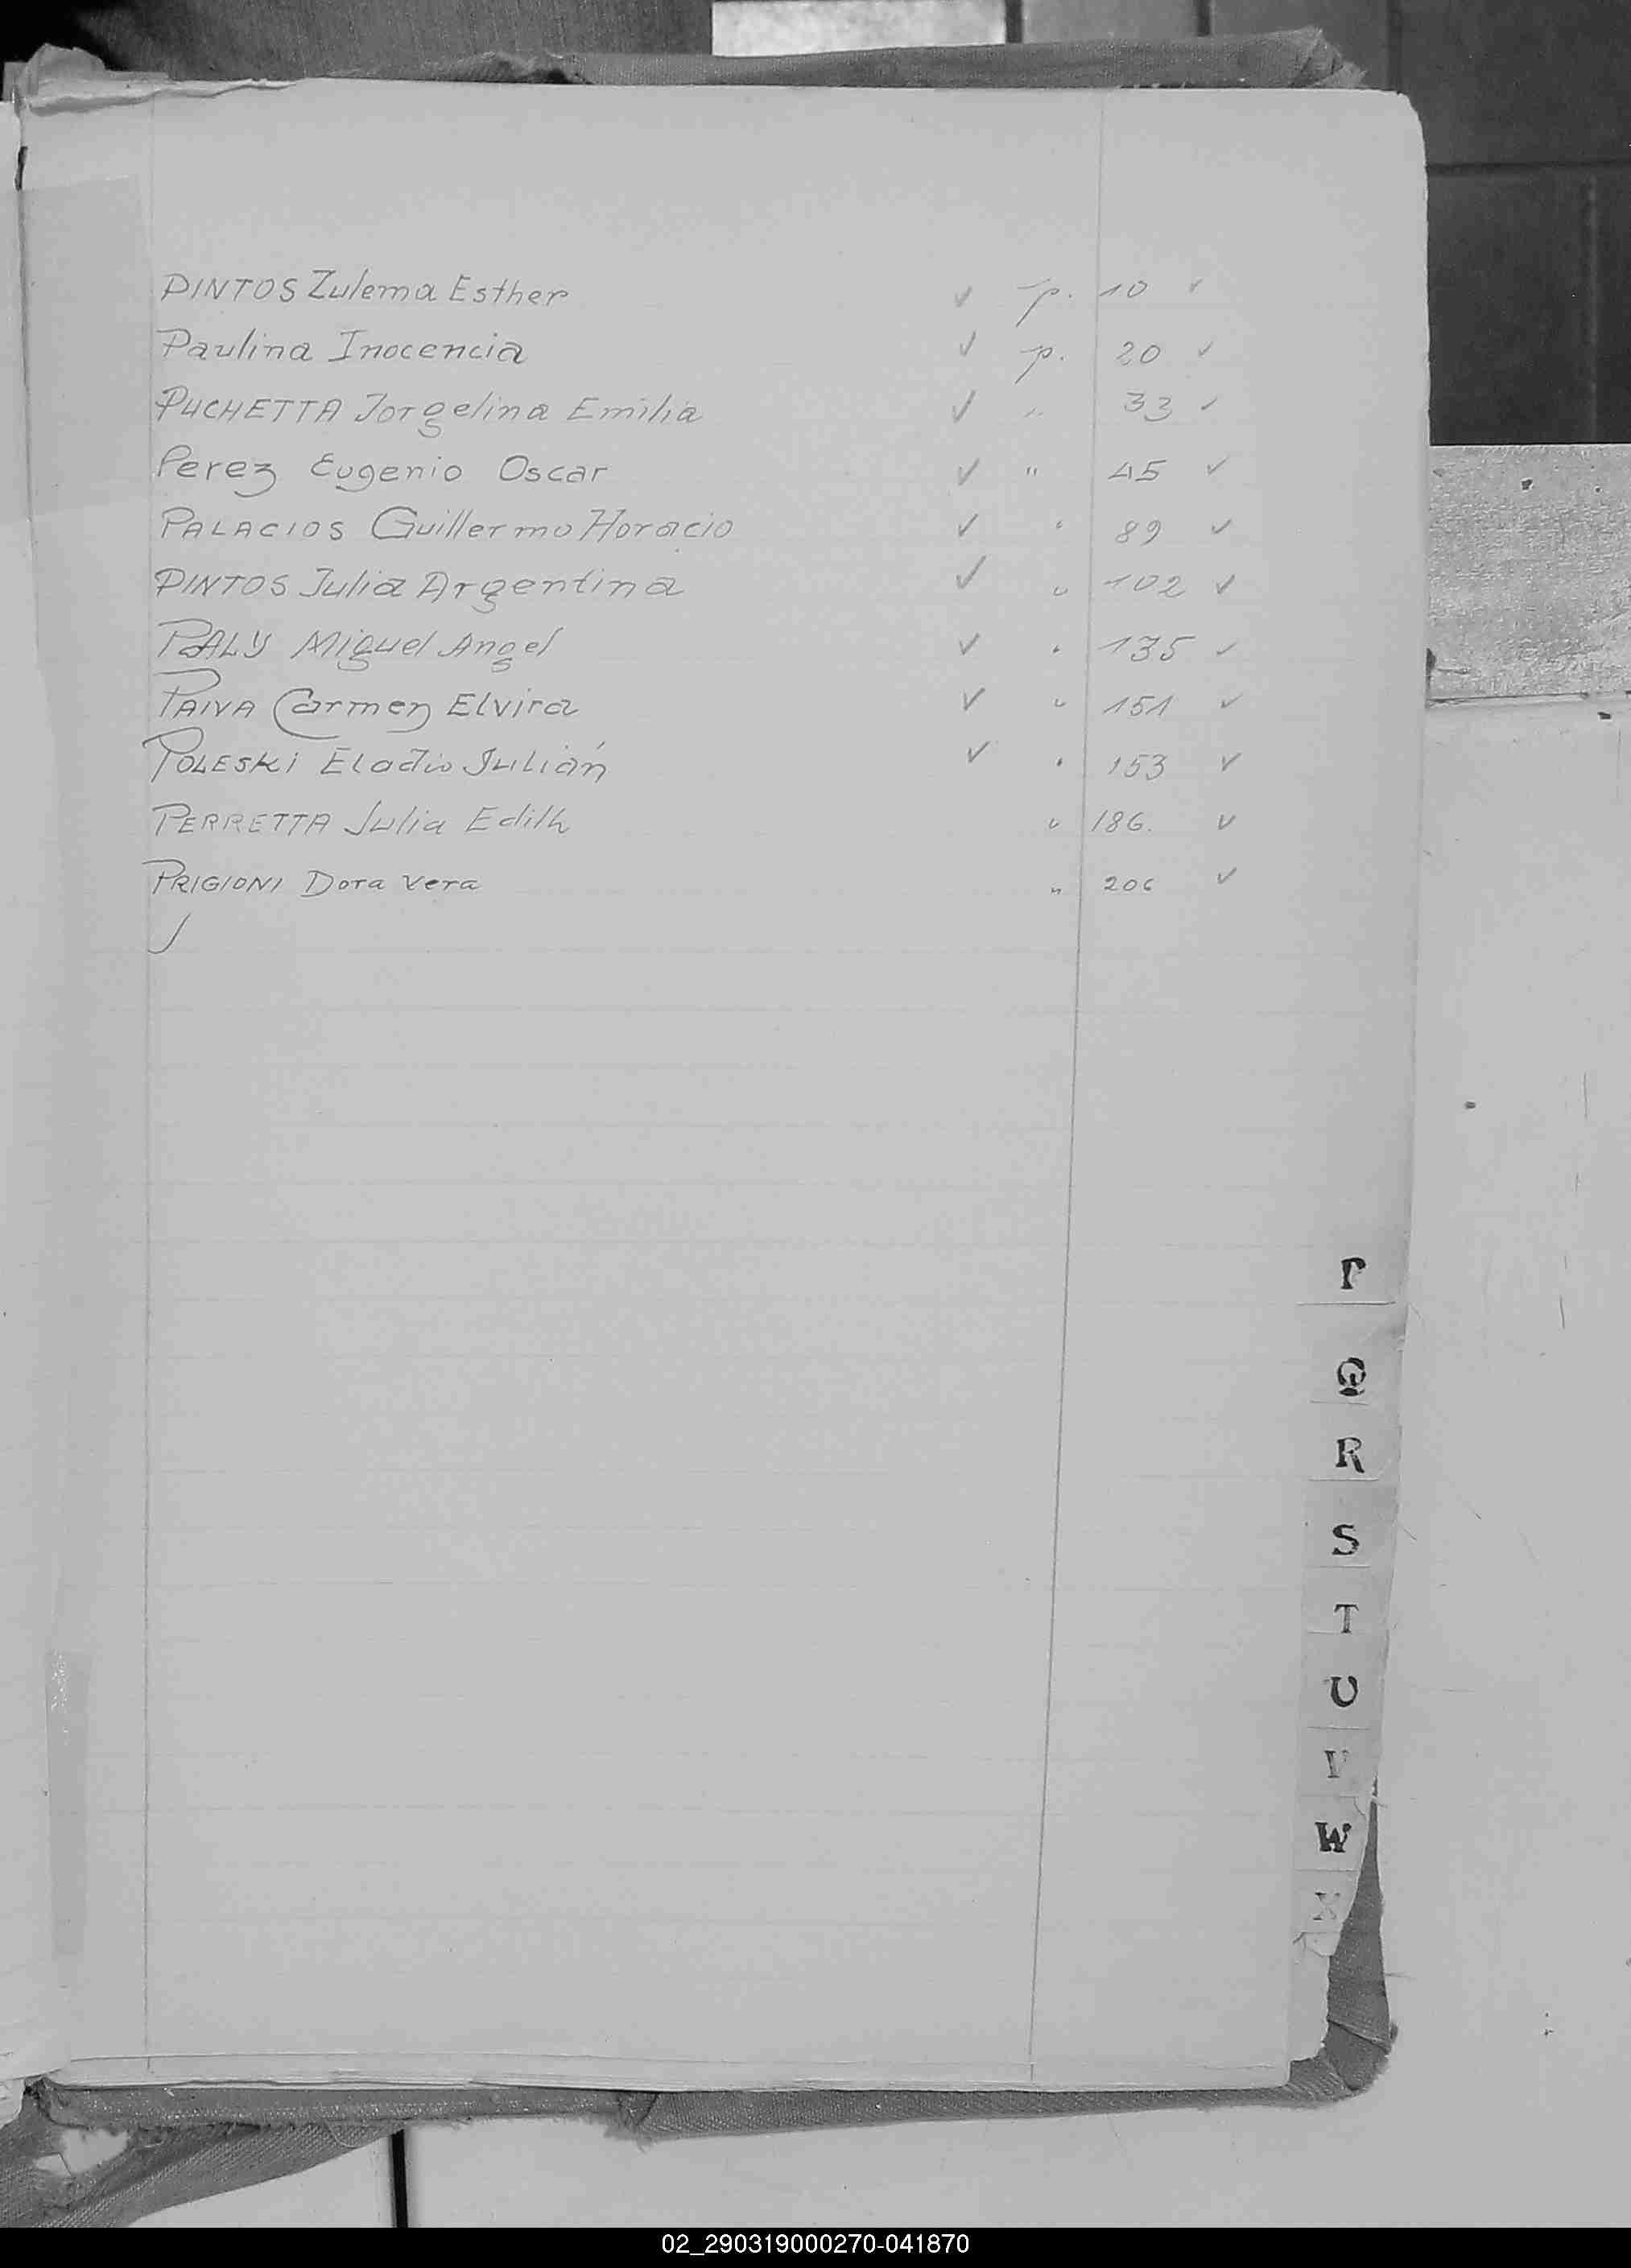 PINTOS Zulema Esther ✓ p. 10 ✓
Paulina Inocencia ✓ p. 20 ✓
PUCHETTA Jorgelina Emilia ✓ " 33 ✓
Perez Eugenio Oscar ✓ " 45 ✓
PALACIOS Guillermo Horacio ✓ " 89 ✓
PINTOS Julia Argentina ✓ " 102 ✓
PALY Miguel Angel ✓ " 135 ✓
PAIVA Carmen Elvira ✓ " 151 ✓
POLESKI Eladio Julián ✓ " 153 ✓
PERRETTA Julia Edith " 186. ✓
PRIGIONI Dora Vera " 206 ✓
P
Q
R
S
T
U
V
W
X
02_290319000270-041870